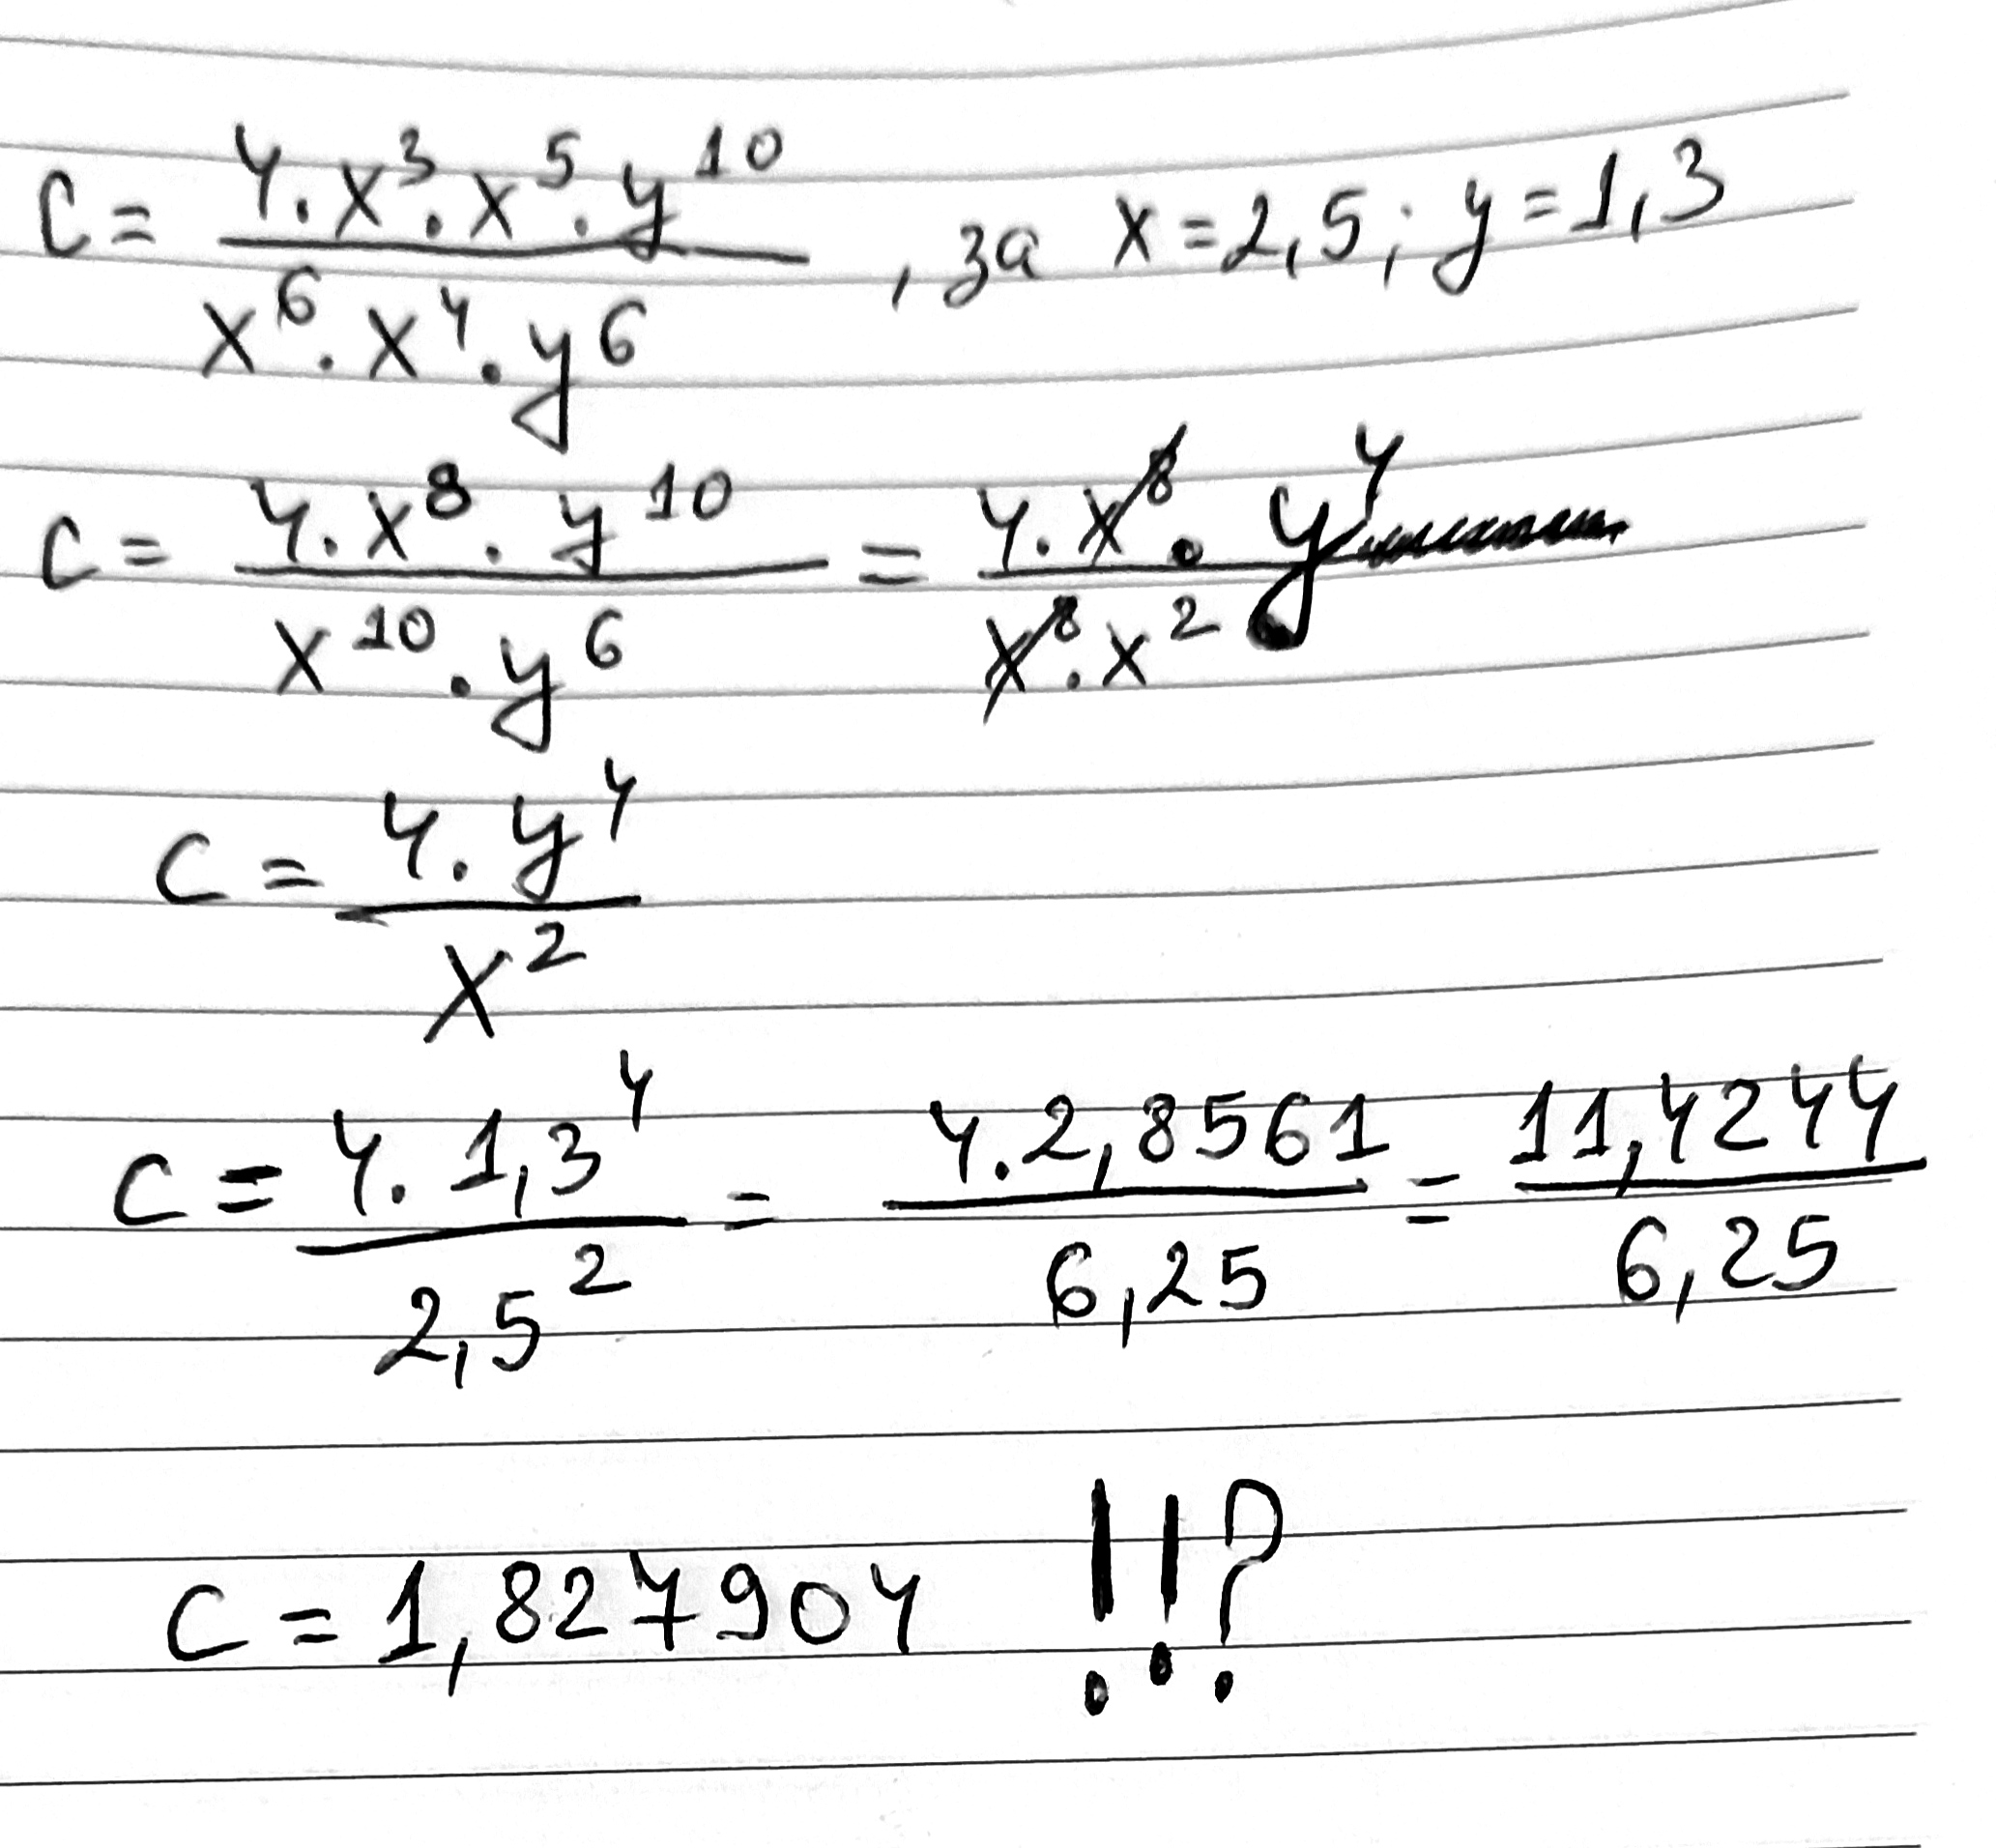 C = 4.x³.x⁵.y¹⁰ / x⁶.x⁴.y⁶ , за x=2,5; y=1,3
C = 4.x⁸.y¹⁰ / x¹⁰.y⁶ = 4.x⁸.y⁴ / x⁸.x²
C = 4.y⁴ / x²
C = 4.1,3⁴ / 2,5² = 4.2,8561 / 6,25 = 11,4244 / 6,25
C = 1,827904 !!?